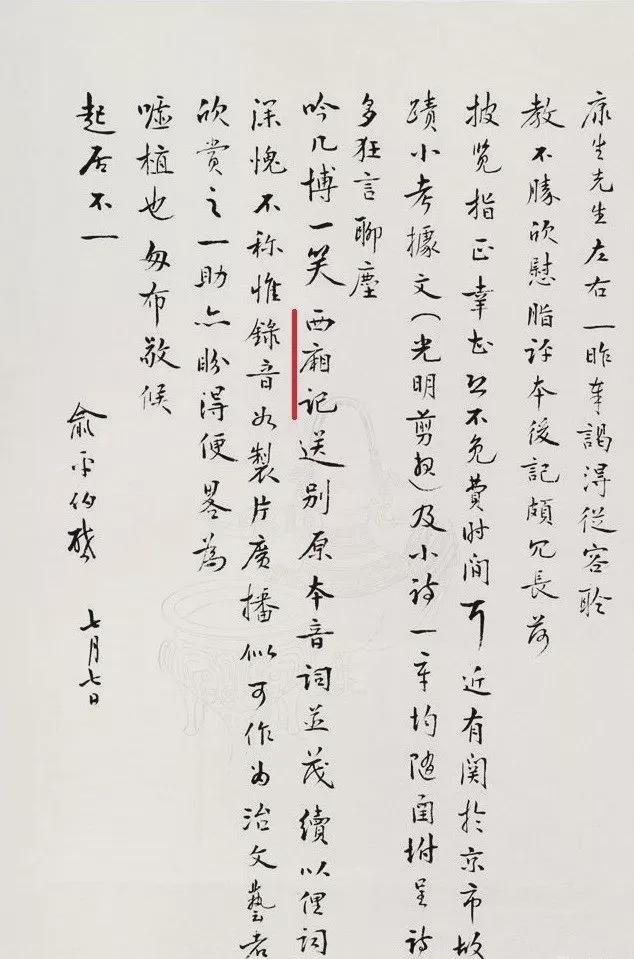 康生先生左右一昨奉謁得從容聆
教不勝欣慰脂評本後記頗冗長荷
披览指正幸甚以不免費时间耳近有関於京市故
蹟小考據文（光明剪報）及小詩一章均随函坿呈詩
多狂言聊塵
吟几博一笑西廂記送别原本音詞並茂續以俚詞
深愧不称惟錄音如製片廣播似可作为治文藝者
欣賞之一助亦盼得便畧為
噓植也匆布敬候
起居不一
俞平伯啓
七月七日